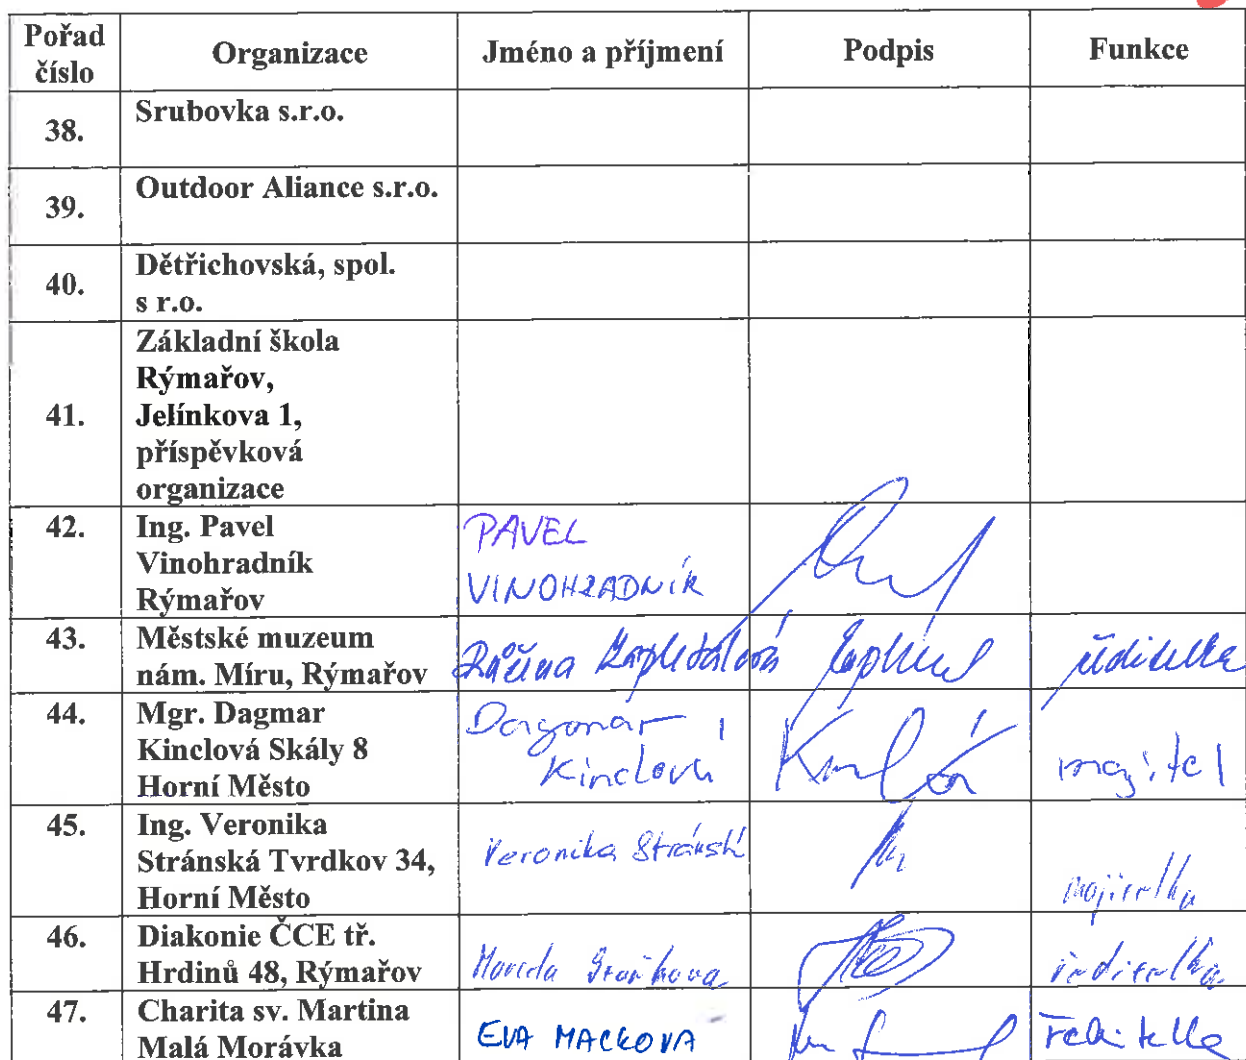 Pořad číslo Organizace Jméno a příjmení Podpis Funkce
38. Srubovka s.r.o.
39. Outdoor Aliance s.r.o.
40. Dětřichovská, spol.
s r.o.
41. Základní škola
Rýmařov,
Jelínkova 1,
příspěvková
organizace
42. Ing. Pavel PAVEL
Vinohradník VINOHRADNÍK
Rýmařov
43. Městské muzeum
nám. Míru, Rýmařov Růžena Zapletalová ředitelka
44. Mgr. Dagmar Dagmar
Kinclová Skály 8 Kinclová majitel
Horní Město
45. Ing. Veronika
Stránská Tvrdkov 34, Veronika Stránská
Horní Město majitelka
46. Diakonie ČCE tř.
Hrdinů 48, Rýmařov Marcela ředitelka
47. Charita sv. Martina
Malá Morávka EVA MACKOVA ředitelka